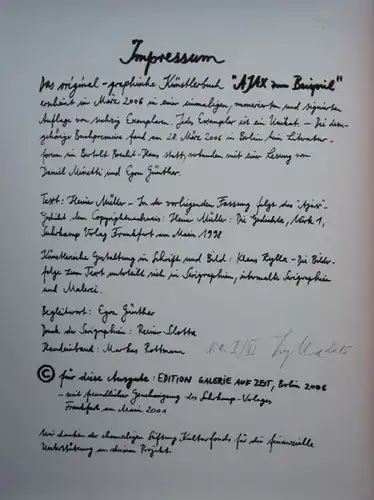 Impressum
Das original-graphische Künstlerbuch "AJAX zum Beispiel"
erscheint im März 2006 in einer einmaligen, nummerierten und signierten
Auflage von sechzig Exemplaren. Jedes Exemplar ist ein Unikat - Die dazu-
gehörige Buchpremiere fand am 28. März 2006 in Berlin, im Literatur-
forum im Bertolt Brecht-Haus statt, verbunden mit einer Lesung von
Daniel Minetti und Egon Günther.
Text: Heiner Müller - In der vorliegenden Fassung folgt das "Ajax"-
Gedicht dem Copyrightnachweis: Heiner Müller: Die Gedichte, Werk 1,
Suhrkamp Verlag Frankfurt am Main 1998
Künstlerische Gestaltung in Schrift und Bild: Klaus Zylla - Die Bilder-
folge zum Text unterteilt sich in Serigraphien, übermalte Serigraphien
und Malerei.
Begleitwort: Egon Günther
Druck der Serigraphien: Reiner Slotta
Handeinband: Markus Rottmann
© für diese Ausgabe: EDITION GALERIE AUF ZEIT, Berlin 2006
- mit freundlicher Genehmigung des Suhrkamp-Verlages
Frankfurt am Main 2001
Wir danken der ehemaligen Stiftung Kulturfonds für die finanzielle
Unterstützung an diesem Projekt.